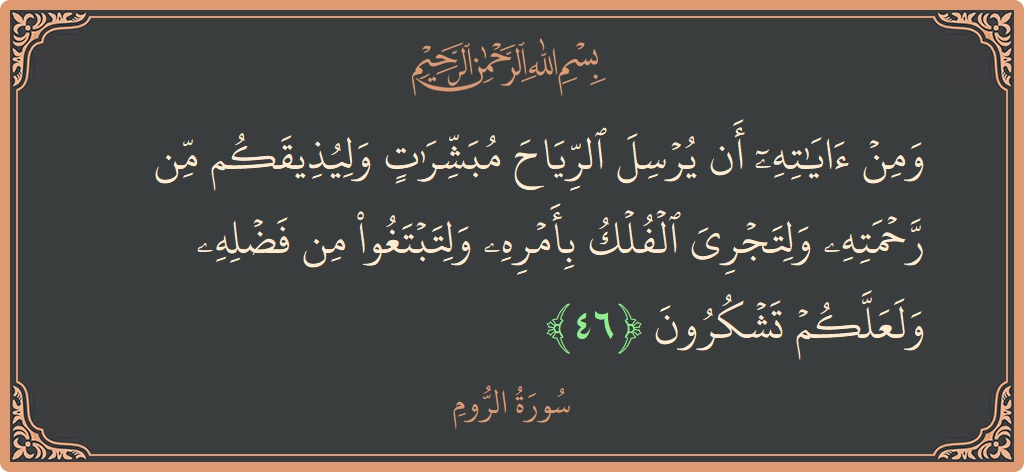 بِسْمِ اللَّهِ الرَّحْمَٰنِ الرَّحِيمِ
وَمِنْ ءَايَٰتِهِۦٓ أَن يُرْسِلَ ٱلرِّيَاحَ مُبَشِّرَٰتٍ وَلِيُذِيقَكُم مِّن
رَّحْمَتِهِۦ وَلِتَجْرِىَ ٱلْفُلْكُ بِأَمْرِهِۦ وَلِتَبْتَغُوا۟ مِن فَضْلِهِۦ
وَلَعَلَّكُمْ تَشْكُرُونَ ﴿٤٦﴾
سُورَةُ الرُّومِ